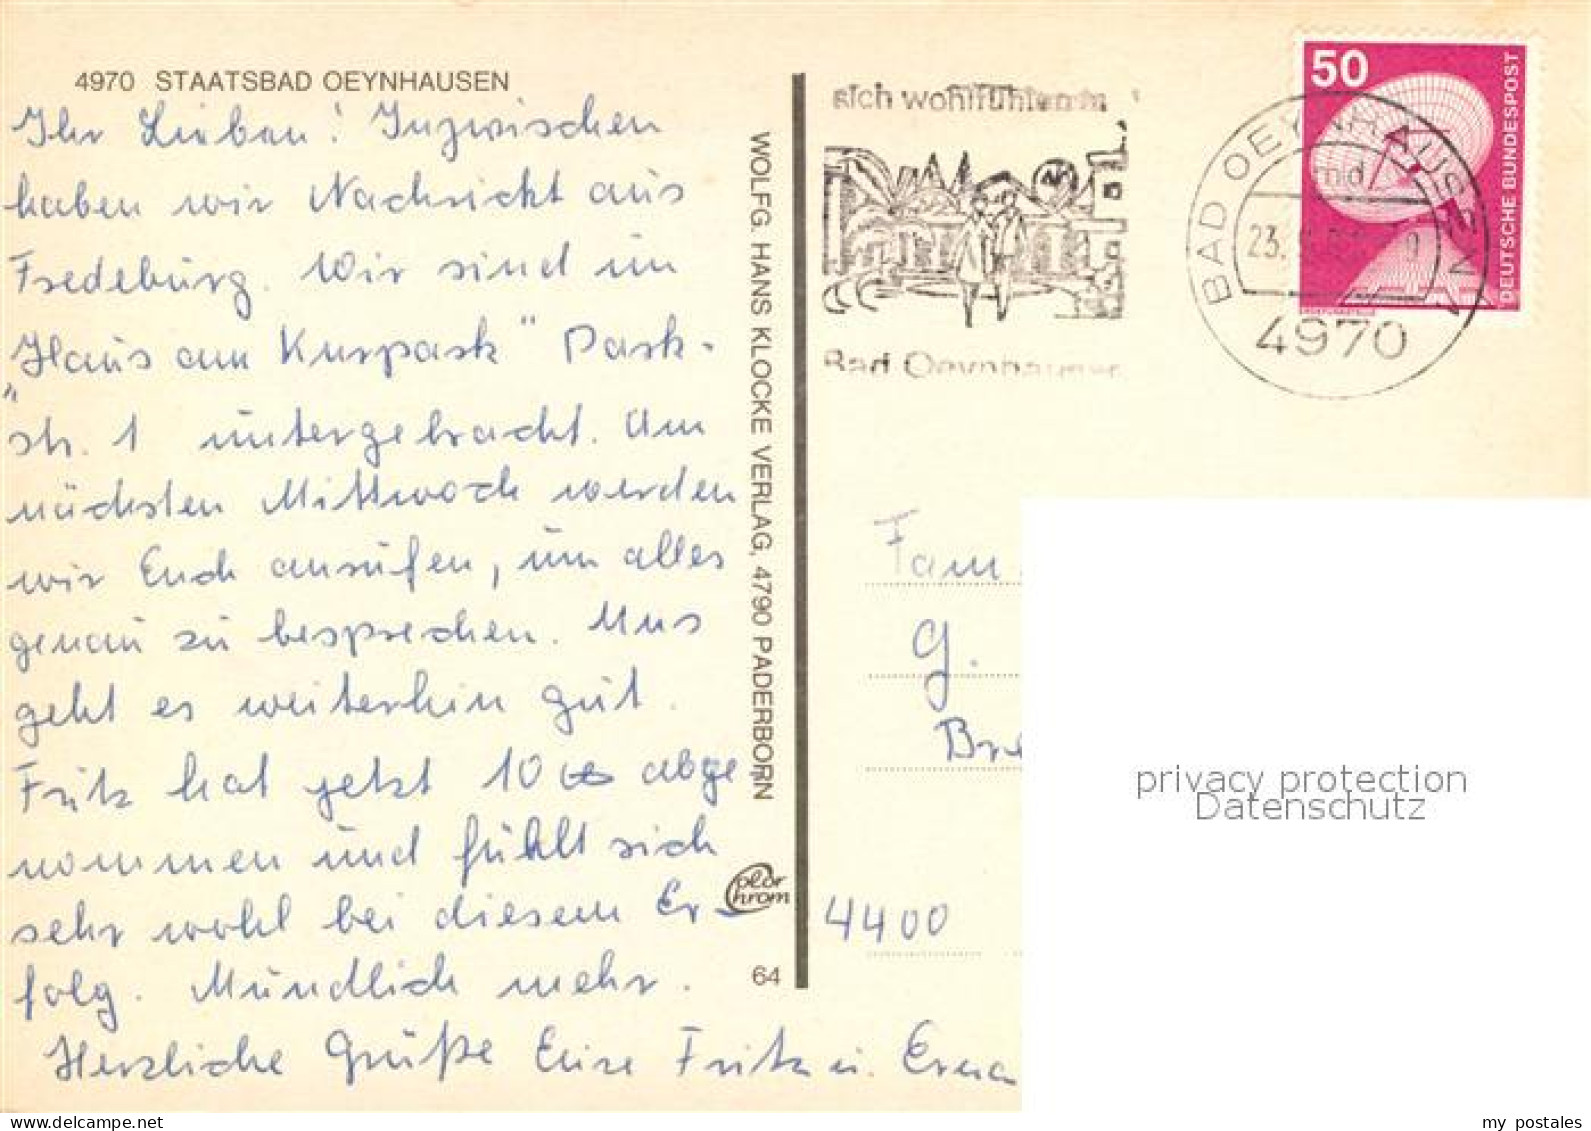 4970 STAATSBAD OEYNHAUSEN
Ihr Lieben! Inzwischen
haben wir Nachricht aus
Fredeburg. Wir sind im
"Haus am Kurpark" Park-
str. 1 untergebracht. Am
nächsten Mittwoch werden
wir Euch anrufen, um alles
genau zu besprechen. Uns
geht es weiterhin gut.
Fritz hat jetzt 10 abge
nommen und fühlt sich
sehr wohl bei diesem Er-
folg. Mündlich mehr.
Herzliche Grüße Eure Fritz u. Erna
WOLFG. HANS KLOCKE VERLAG, 4790 PADERBORN
Colorchrom
64
sich wohlfühlen in
Bad Oeynhausen
BAD OEYNHAUSEN 1
23.
4970
50
DEUTSCHE BUNDESPOST
Fam.
G.
Bre
4400
privacy protection
Datenschutz
www.delcampe.net
my_postales